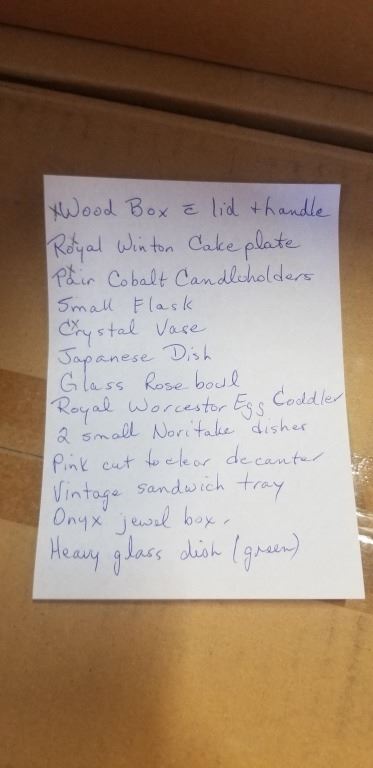 xWood Box c̄ lid + handle
Royal Winton Cake plate
Pair Cobalt Candleholders
Small Flask
Crystal Vase
Japanese Dish
Glass Rose bowl
Royal Worcestor Egg Coddler
2 small Noritake dishes
Pink cut to clear decanter
Vintage sandwich tray
Onyx jewel box.
Heavy glass dish (green)